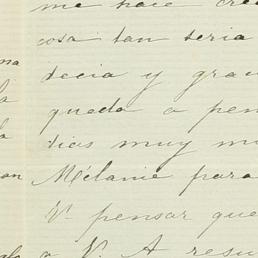 me hace cre
cosa tan seria
decia y grac
queda a pen
dias muy mu
Mélanie para
V. pensar que
a V. A resu